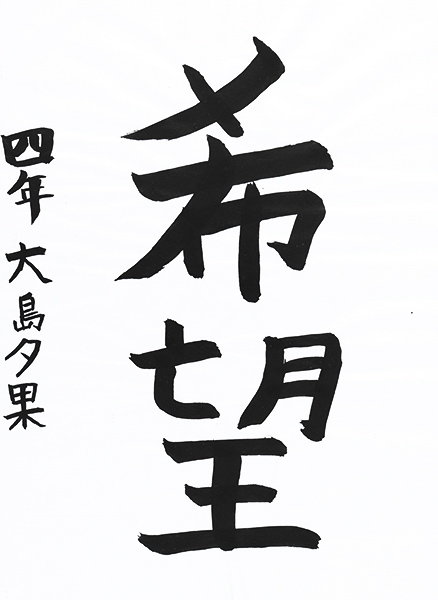 希望
四年 大島夕果